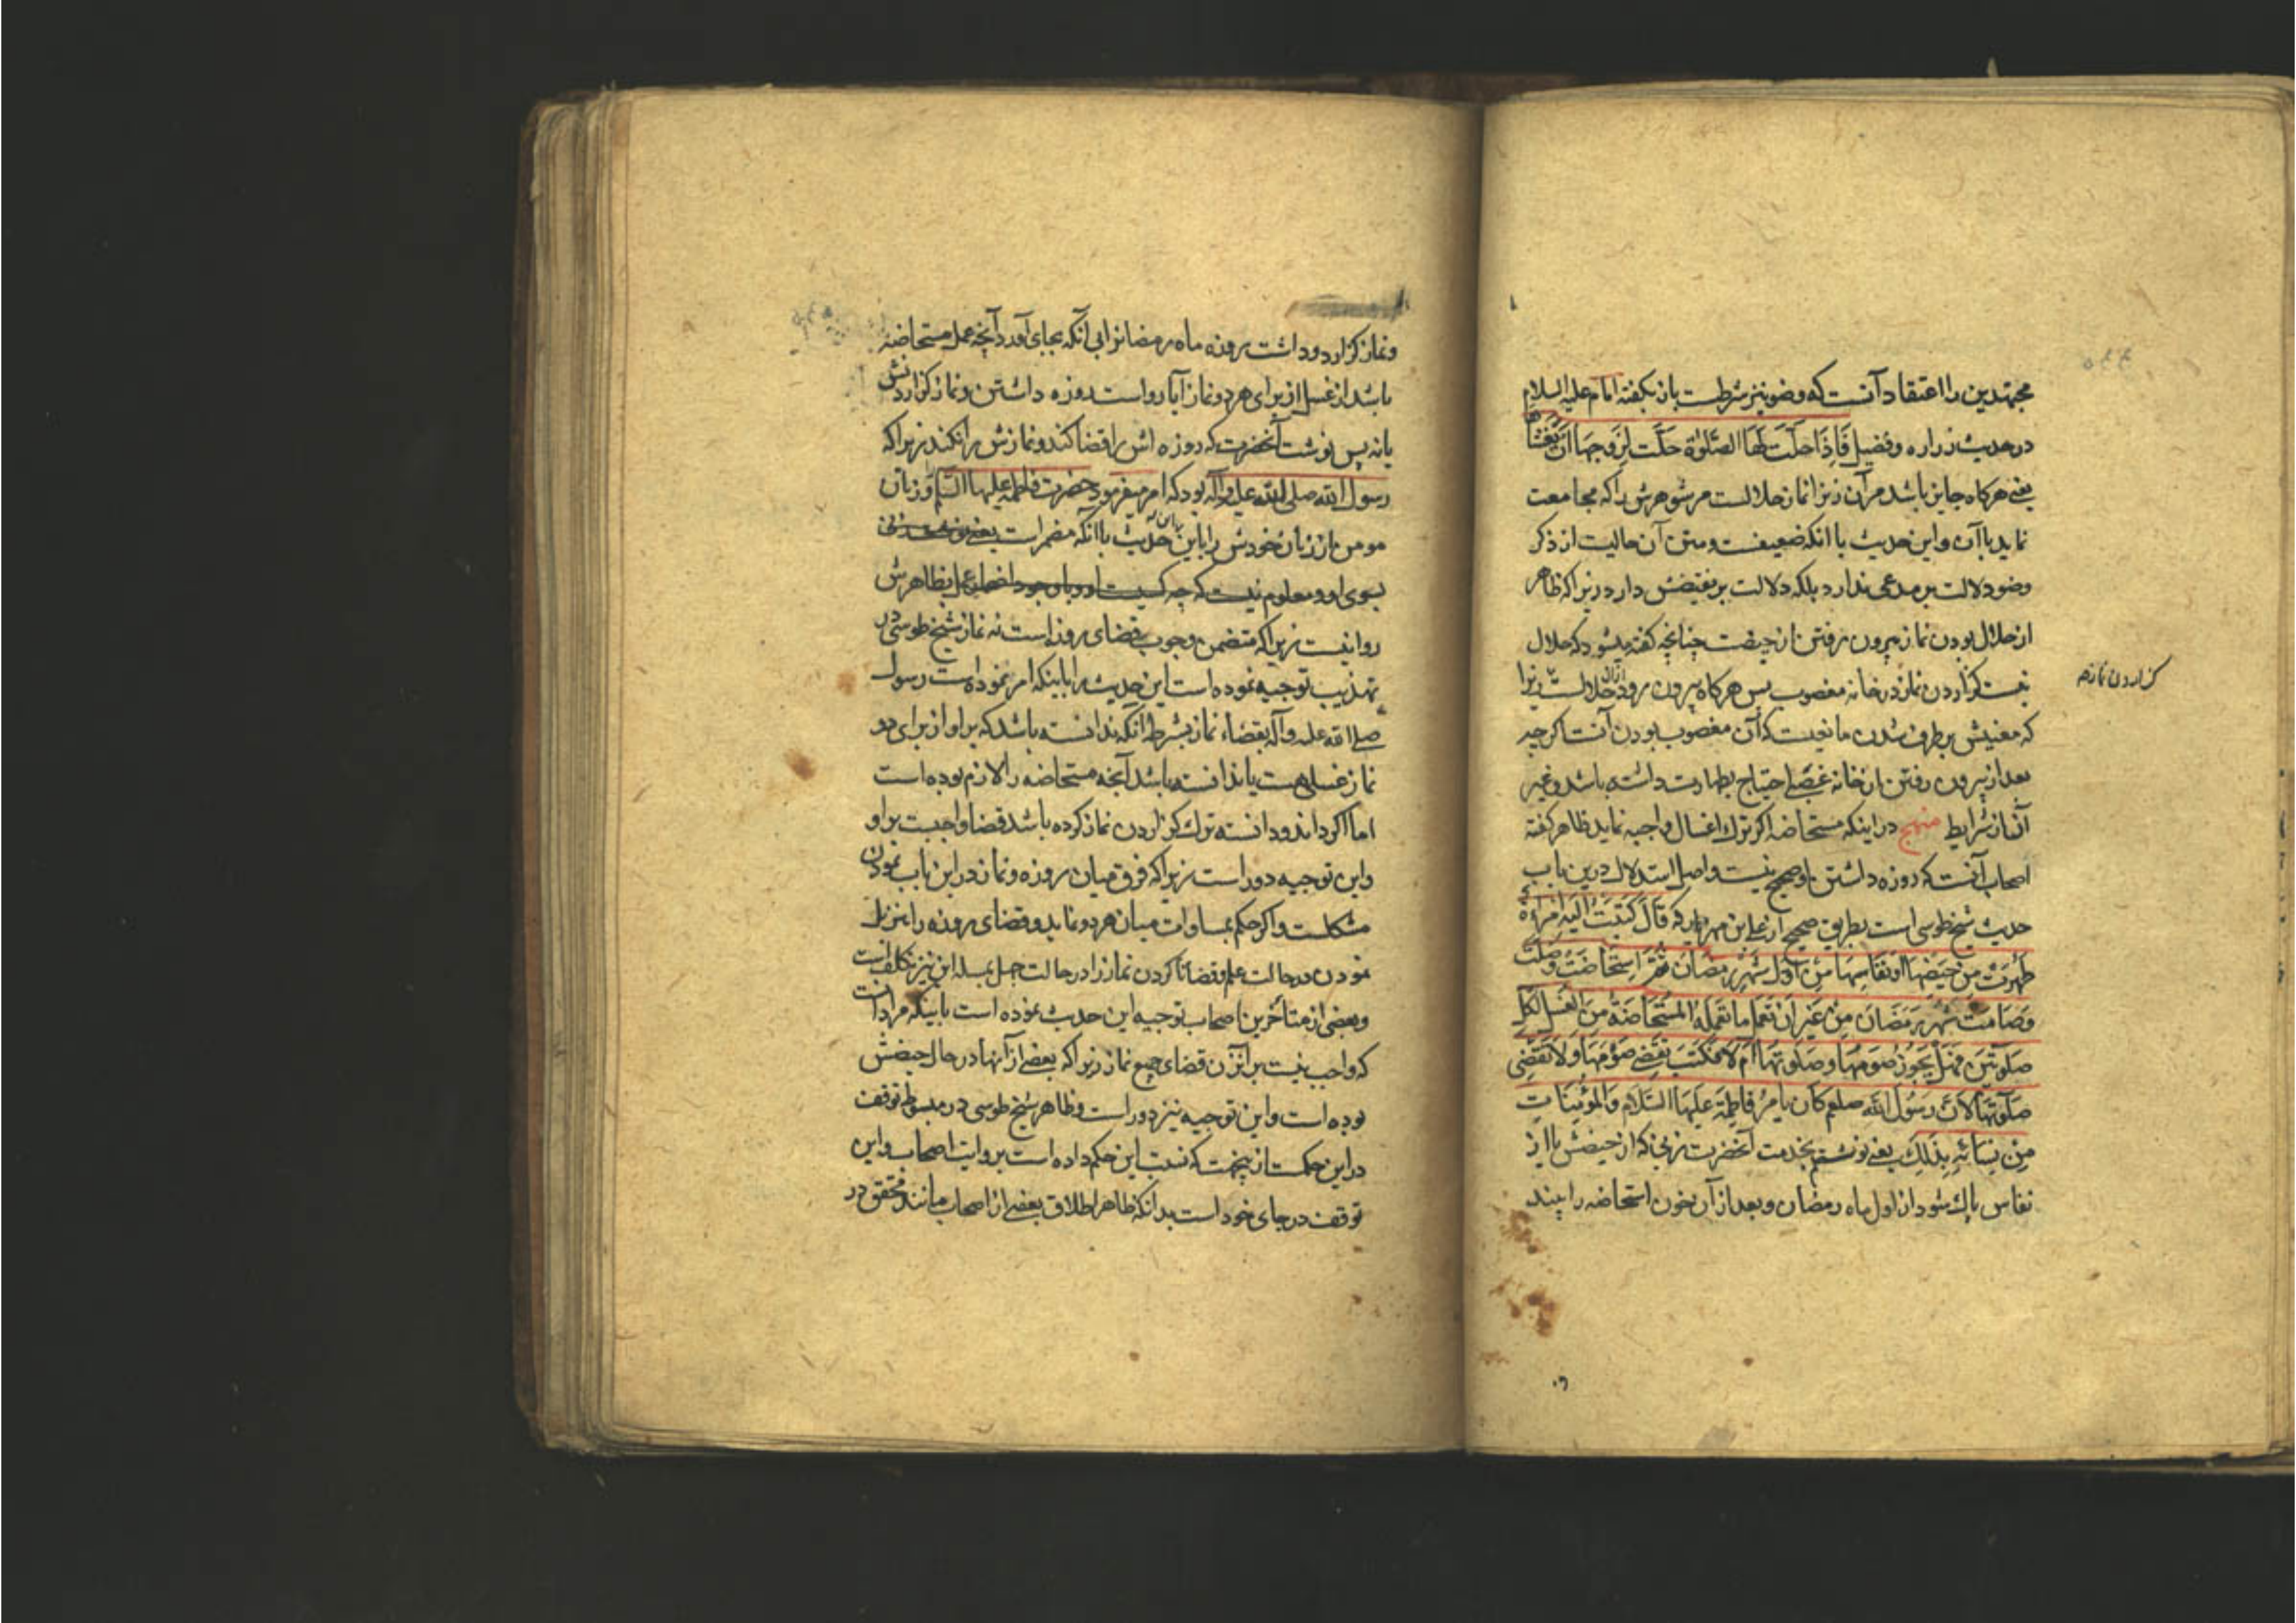 مجتهدین را اعتقاد آنست که وضو نیز شرطست بازنکه گفته امام علیه السلام
در حدیث زراره و فضیل فَاِذَا حَلَّتْ لَهَا الصَّلوٰةُ حَلَّتْ لِزَوجِهَا اَنْ یَغْشَاهَا
یعنی هرکاه جایز باشد مر آن زنرا نماز حلالست مر شوهرش را که مجامعت
نماید با آن و این حدیث با آنکه ضعیفست و متن آن خالیست از ذکر
وضو دلالت بر مدعی ندارد بلکه دلالت بر نقیضش دارد زیرا که ظاهر
از حلال بودن نماز بیرون رفتن از حیضست چنانچه کفته میشود که حلال
نیست کزاردن نماز در خانه مغصوب پس هرکاه بیرون رود از آن حلالست زیرا
کزاردن نماز
که معنیش برطرف شدن مانعیست که آن مغصوب بودن آنست اکرچه
بعد از بیرون رفتن از خانه غصبی احتیاج بطهارت داشته باشد و غیر
آن از شرایط منهج در اینکه مستحاضه اکر ترك اغسال واجبه نماید ظاهر کفته
اصحاب آنست که روزه داشتن او صحیح نیست و اصل استدلال درین باب
حدیث شیخ طوسی است بطریق صحیح از علی بن مهزیار که قَالَ کَتَبَتْ اِلَیهِ امْرَاَةٌ
طَهُرَتْ مِنْ حَیضِهَا اَو نِفَاسِهَا مِنْ اَوَّلِ شَهْرِ رَمَضَانَ ثُمَّ اسْتَحَاضَتْ وَصَلَّتْ
وَصَامَتْ شَهْرَ رَمَضَانَ مِنْ غَیرِ اَنْ تَعْمَلَ مَا تَعْمَلُهُ المُسْتَحَاضَةُ مِنَ الغُسْلِ لِکُلِّ
صَلوتَینِ فَهَلْ یَجُوزُ صَومُهَا وَصَلوتُهَا اَمْ لَا فَکَتَبَ تَقْضِی صَوْمَهَا وَلَا تَقْضِی
صَلَوتَهَا لِاَنَّ رَسُولَ اللهِ صلعم کَانَ یَامُرُ فَاطِمَةَ عَلَیهَا السَّلَام وَالمُؤمِنَاتِ
مِنْ نِسَائِهِ بِذٰلِكَ یعنی نوشتم بخدمت آنحضرت زنی که از حیضش یا از
نفاس پاك شود از اول ماه رمضان و بعد از آن خون استحاضه را بیند
و نماز کزارد و داشت روزه ماه رمضانرا بی آنکه بجای آورد آنچه عمل مستحاضه
باشد از غسل از برای هر دو نماز آیا رواست روزه داشتن و نماز کزاردنش
یا نه پس نوشت آنحضرت که روزه اش را قضا کند و نمازش را نکند زیرا که
رسول الله صلی الله علیه وآله بود که امر میفرمود حضرت فاطمه علیها السلام و زنان
مومن از زنان خودش را باین حدیث با آنکه مضمر است
بسوی او و معلوم نیست که چه کسیست عمل بظاهرش
روا نیست زیرا که متضمن وجوب قضای روزه است نه نماز شیخ طوسی در
تهذیب توجیه نموده است این حدیث را باینکه امر نموده است رسول
صلی الله علیه وآله بقضاء نماز بشرط آنکه ندانسته باشد که بر او از برای دو
نماز غسلی هست یا ندانسته باشد آنچه مستحاضه را لازم بوده است
اما اکر داند و دانسته ترك کزاردن نماز کرده باشد قضا واجبست بر او
و این توجیه دور است زیرا که فرق میان روزه و نماز در این باب نمودن
مشکلست و اکر حکم بمساوات میان هر دو نماید و قضای روزه را
نمودن در حالت علم و قضا نا کردن نماز را در حالت جهل بمسله این نیز تکلف است
و بعضی از متأخرین اصحاب توجیه این حدیث نموده است باینکه مراد آنست
که واجب نیست بر آنزن قضای جمیع نماز زیرا که بعضی از آنها در حال حیضش
بوده است و این توجیه نیز دور است و ظاهر شیخ طوسی در مبسوط توقف
در این حکمست از این جهت که نسبت این حکم داده است بروایت اصحاب و این
توقف در جای خود است بدانکه ظاهر اطلاق بعضی از اصحاب مانند محقق در